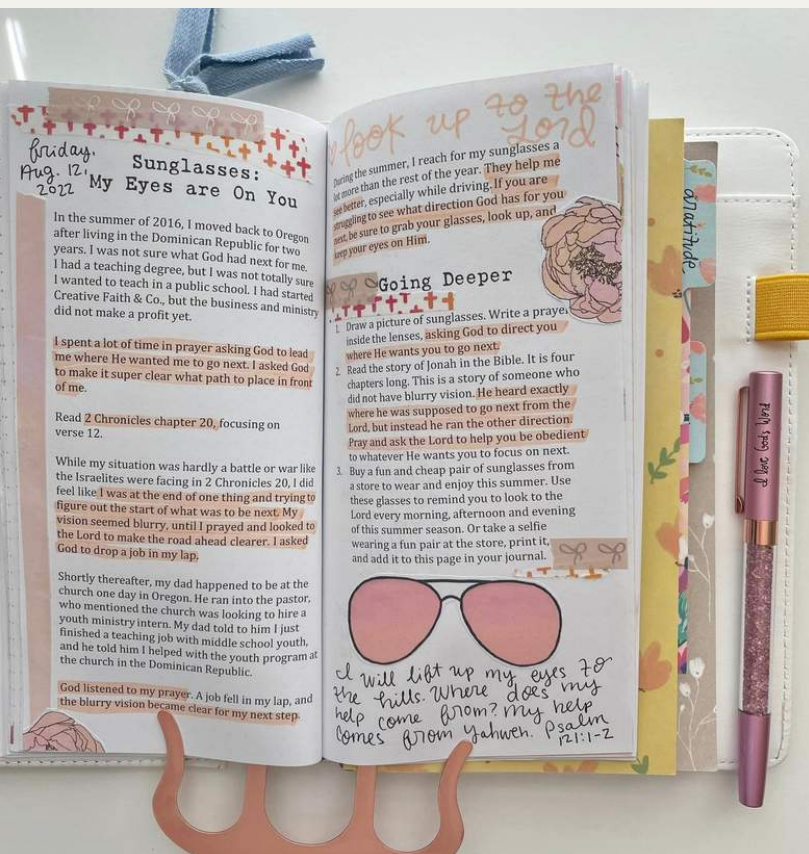 friday,
Aug. 12,
2022
Sunglasses:
My Eyes are On You
In the summer of 2016, I moved back to Oregon
after living in the Dominican Republic for two
years. I was not sure what God had next for me.
I had a teaching degree, but I was not totally sure
I wanted to teach in a public school. I had started
Creative Faith & Co., but the business and ministry
did not make a profit yet.
I spent a lot of time in prayer asking God to lead
me where He wanted me to go next. I asked God
to make it super clear what path to place in front
of me.
Read 2 Chronicles chapter 20, focusing on
verse 12.
While my situation was hardly a battle or war like
the Israelites were facing in 2 Chronicles 20, I did
feel like I was at the end of one thing and trying to
figure out the start of what was to be next. My
vision seemed blurry, until I prayed and looked to
the Lord to make the road ahead clearer. I asked
God to drop a job in my lap.
Shortly thereafter, my dad happened to be at the
church one day in Oregon. He ran into the pastor,
who mentioned the church was looking to hire a
youth ministry intern. My dad told to him I just
finished a teaching job with middle school youth,
and he told him I helped with the youth program at
the church in the Dominican Republic.
God listened to my prayer. A job fell in my lap, and
the blurry vision became clear for my next step.
look up to the
Lord
During the summer, I reach for my sunglasses a
lot more than the rest of the year. They help me
see better, especially while driving. If you are
struggling to see what direction God has for you
next, be sure to grab your glasses, look up, and
keep your eyes on Him.
Going Deeper
1. Draw a picture of sunglasses. Write a prayer
inside the lenses, asking God to direct you
where He wants you to go next.
2. Read the story of Jonah in the Bible. It is four
chapters long. This is a story of someone who
did not have blurry vision. He heard exactly
where he was supposed to go next from the
Lord, but instead he ran the other direction.
Pray and ask the Lord to help you be obedient
to whatever He wants you to focus on next.
3. Buy a fun and cheap pair of sunglasses from
a store to wear and enjoy this summer. Use
these glasses to remind you to look to the
Lord every morning, afternoon and evening
of this summer season. Or take a selfie
wearing a fun pair at the store, print it,
and add it to this page in your journal.
I will lift up my eyes to
the hills. Where does my
help come from? My help
comes from Yahweh. Psalm
121:1-2
gratitude
I love God's Word